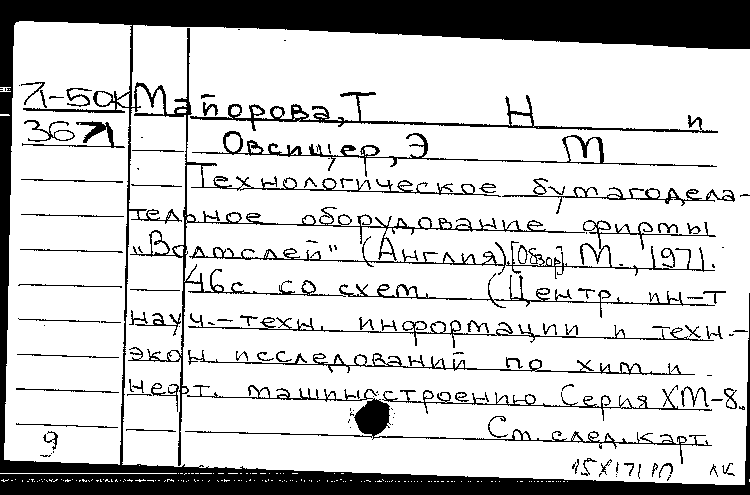 Л-50К Майорова, Т Н и
3671 Овсищер, Э М
Технологическое бумагодела-
тельное оборудование фирмы
„Волмслей" (Англия). [Обзор]. М., 1971.
46с. со схем. (Центр. ин-т
науч.-техн. информации и техн.-
экон. исследований по хим. и
нефт. машиностроению. Серия ХМ-8.
См. след. карт.
9